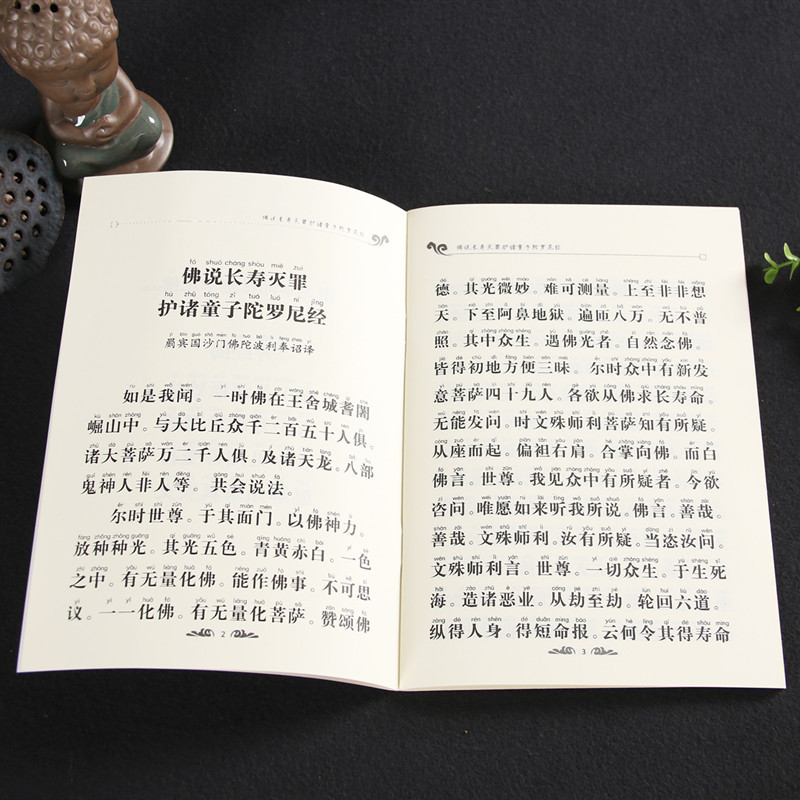 佛说长寿灭罪护诸童子陀罗尼经
fó shuō cháng shòu miè zuì
佛说长寿灭罪
hù zhū tóng zǐ tuó luó ní jīng
护诸童子陀罗尼经
罽宾国沙门佛陀波利奉诏译
如是我闻。一时佛在王舍城耆阇
崛山中。与大比丘众千二百五十人俱。
诸大菩萨万二千人俱。及诸天龙。八部
鬼神人非人等。共会说法。
尔时世尊。于其面门。以佛神力。
放种种光。其光五色。青黄赤白。一色
之中。有无量化佛。能作佛事。不可思
议。一一化佛。有无量化菩萨。赞颂佛
2
佛说长寿灭罪护诸童子陀罗尼经
德。其光微妙。难可测量。上至非非想
天。下至阿鼻地狱。遍匝八万。无不普
照。其中众生。遇佛光者。自然念佛。
皆得初地方便三昧。尔时众中有新发
意菩萨四十九人。各欲从佛求长寿命。
无能发问。时文殊师利菩萨知有所疑。
从座而起。偏袒右肩。合掌向佛。而白
佛言。世尊。我见众中有所疑者。今欲
咨问。唯愿如来听我所说。佛言。善哉。
善哉。文殊师利。汝有所疑。当恣汝问。
文殊师利言。世尊。一切众生。于生死
海。造诸恶业。从劫至劫。轮回六道。
纵得人身。得短命报。云何令其得寿命
3